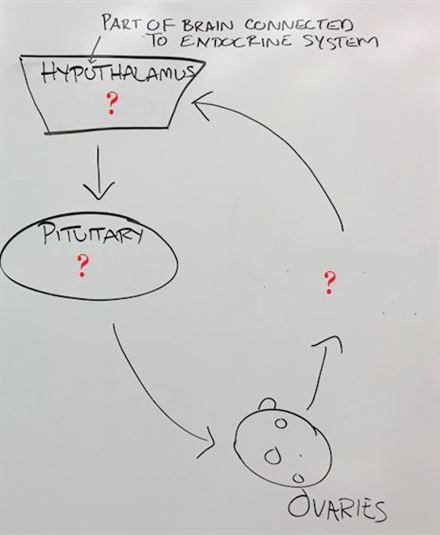 PART OF BRAIN CONNECTED
TO ENDOCRINE SYSTEM
HYPOTHALAMUS
?
PITUITARY
?
?
OVARIES